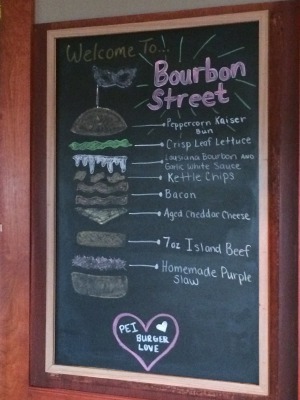 Welcome To...
Bourbon
Street
Peppercorn Kaiser
Bun
Crisp Leaf Lettuce
Louisiana Bourbon AND
Garlic White Sauce
Kettle Chips
Bacon
Aged Cheddar Cheese
7oz Island Beef
Homemade Purple
Slaw
PEI
BURGER
LOVE